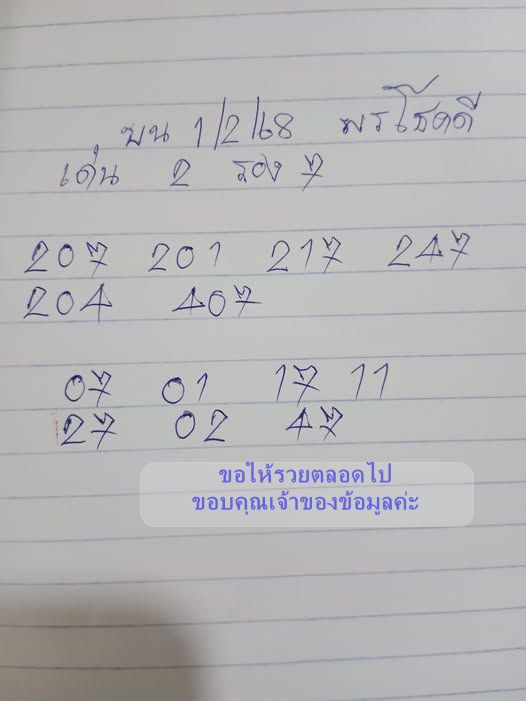 บน 1/2/68 พรโชคดี
เด่น 2 รอง 7
207 201 217 247
204 407
07 01 17 11
27 02 47
ขอให้รวยตลอดไป
ขอบคุณเจ้าของข้อมูลค่ะ